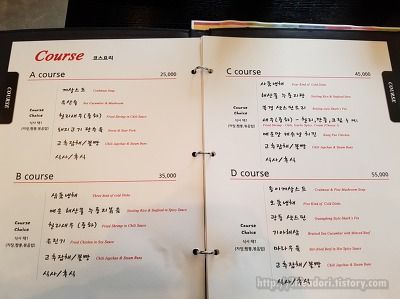 Course 코스요리
COURSE
A course 25,000
게살스프 Crabmeat Soup
유산슬 Sea Cucumber & Mushroom
Course Choice
식사 택1
[자장,짬뽕,볶음밥]
칠리새우(중하) Fried Shrimp in Chili Sauce
돼지고기 탕수육 Sweet & Sour Pork
고추잡채/꽃빵 Chili Japchae & Steam Bun
식사/후식
B course 35,000
삼품냉채 Three Kind of cold Dishe
매운 해산물 누룽지볶음 Sizzling Rice & Seafood in Spicy Sauce
Course Choice
식사 택1
[자장,짬뽕,볶음밥]
칠리새우(중하) Fried Shrimp in Chili Sauce
유린기 Fried Chicken in Soy Sauce
고추잡채/꽃빵 Chili Japchae & Steam Bun
식사/후식
COURSE
C course 45,000
사품냉채 Four Kind of Cold Dishe
해산물 누룽지탕 Sizzling Rice & Seafood Stew
Course Choice
식사 택1
[자장,짬뽕,볶음밥]
북경 샥스핀요리
새우(중하) - 칠리,깐풍,크림 中 택1
매운맛 깨수탕 치킨 Kung Pao Chicken
고추잡채/꽃빵 Chili Japchae & Steam Bun
식사/후식
D course 55,000
송이게살스프 Crabmeat & Pine Mushroom Soup
오품냉채 Five Kind of Cold Dishe
Course Choice
식사 택1
[자장,짬뽕,볶음밥]
광동 샥스핀 Guangdong Style Shark's Fin
기아해삼 Braised Sea Cucumber with Minced Beef
마라우육 Stir-fried Beef in Hot Spicy Sauce
고추잡채/꽃빵 Chili Japchae & Steam Bun
식사/후식